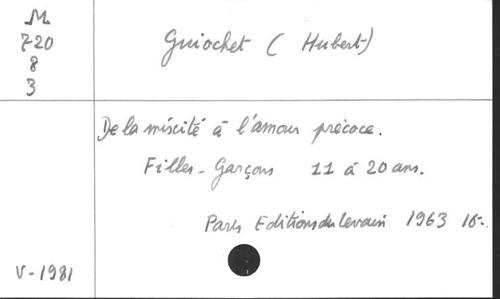 M
720
8
3
Guiochet (Hubert)
De la miscité à l'amour précoce.
Filles-Garçons 11 à 20 ans.
Paris Editions du levain 1963 16-.
V-1981